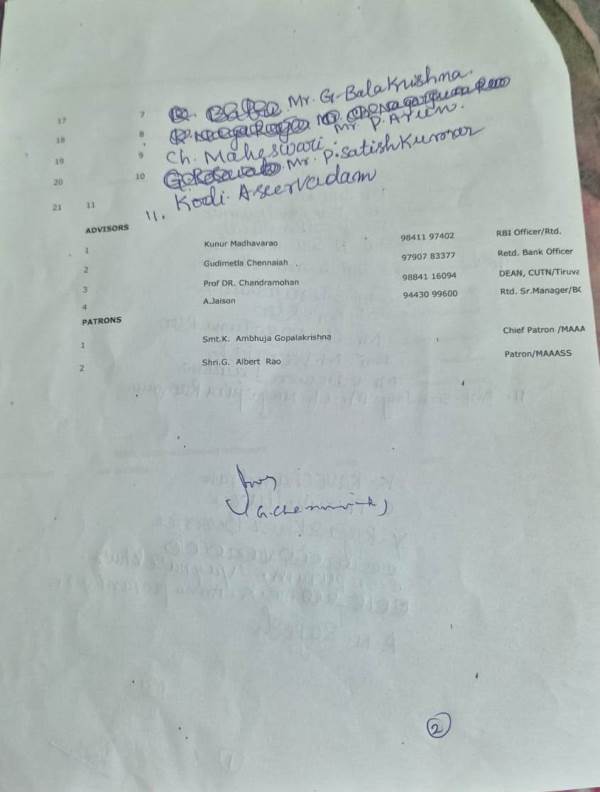 17 7 Mr. G. Balakrishna.
18 8 Mr. P. Arun.
19 9 Ch. Maheswari
20 10 Mr. P. Satish Kumar
21 11 11. Kodi. Aseervadam
ADVISORS
1 Kunur Madhavarao 98411 97402 RBI Officer/Rtd.
2 Gudimetla Chennaiah 97907 83377 Retd. Bank Officer
3 Prof DR. Chandramohan 98841 16094 DEAN, CUTN/Tiruva
4 A.Jaison 94430 99600 Rtd. Sr.Manager/BO
PATRONS
1 Smt.K. Ambhuja Gopalakrishna Chief Patron /MAAA
2 Shri.G. Albert Rao Patron/MAAASS
2